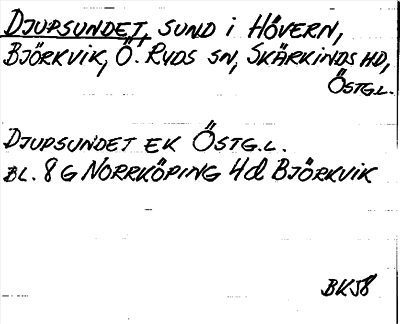 DJUPSUNDET, SUND i HÖVERN,
BJÖRKVIK, Ö. RYDS SN, SKÄRKINDS HD,
ÖSTG.L.
DJUPSUNDET EK ÖSTG.L.
BL. 8 G NORRKÖPING 4d BJÖRKVIK
BK58